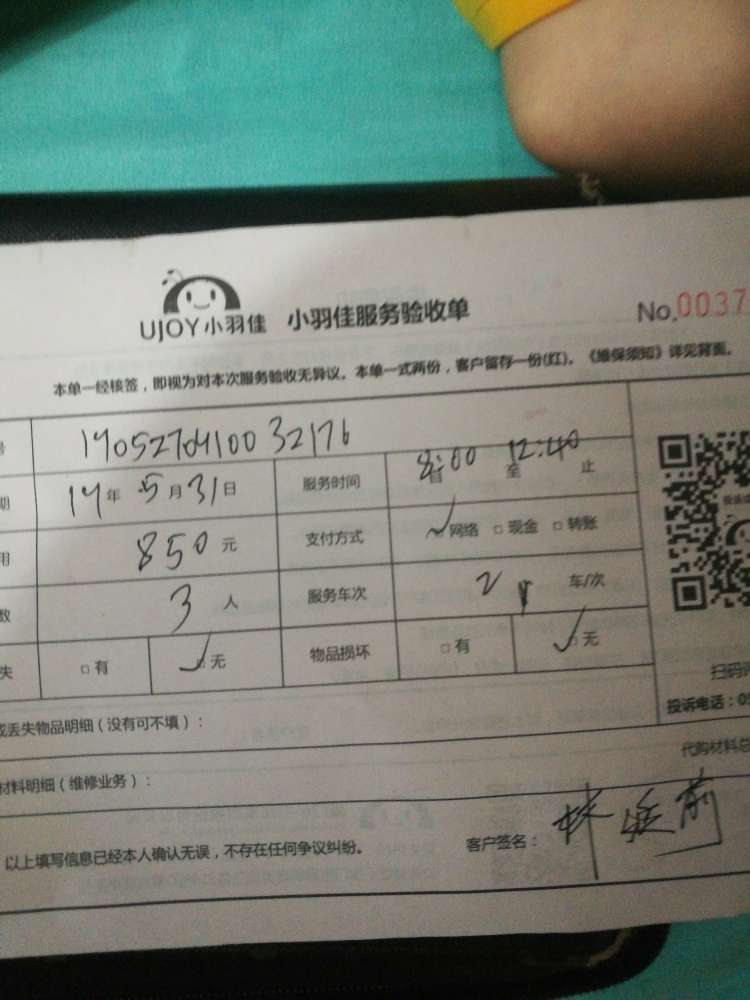 UJOY小羽佳 小羽佳服务验收单 No.0037
本单一经核签，即视为对本次服务验收无异议。本单一式两份，客户留存一份(红)。《维保须知》详见背面。
号 1905270410032176
期 19年 5月31日 服务时间 8:00 自 12:40 至 止
用 850元 支付方式 ✓网络 □现金 □转账
数 3人 服务车次 2 车/次
失 □有 ✓□无 物品损坏 □有 ✓□无
扫码
或丢失物品明细（没有可不填）： 投诉电话：05
材料明细（维修业务）： 代购材料总
以上填写信息已经本人确认无误，不存在任何争议纠纷。 客户签名：林